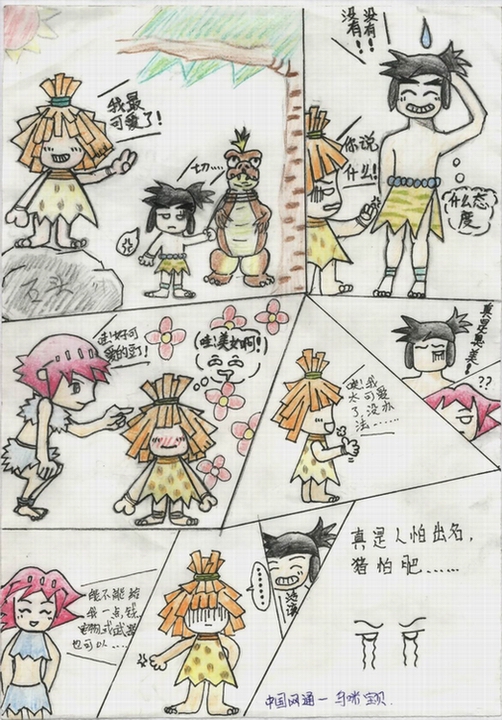 我最
可爱了！
切....
石头
没有！
没有！！
你说
什么！
什么态
度
哇!好可
爱的豆!
哇!美女啊!
唉!我
太可爱
了,没办
法......
真是臭美！
??
能不能给
我一点钱,
宠物或武器
也可以....
......
真是人怕出名,
猪怕肥......
中国网通一